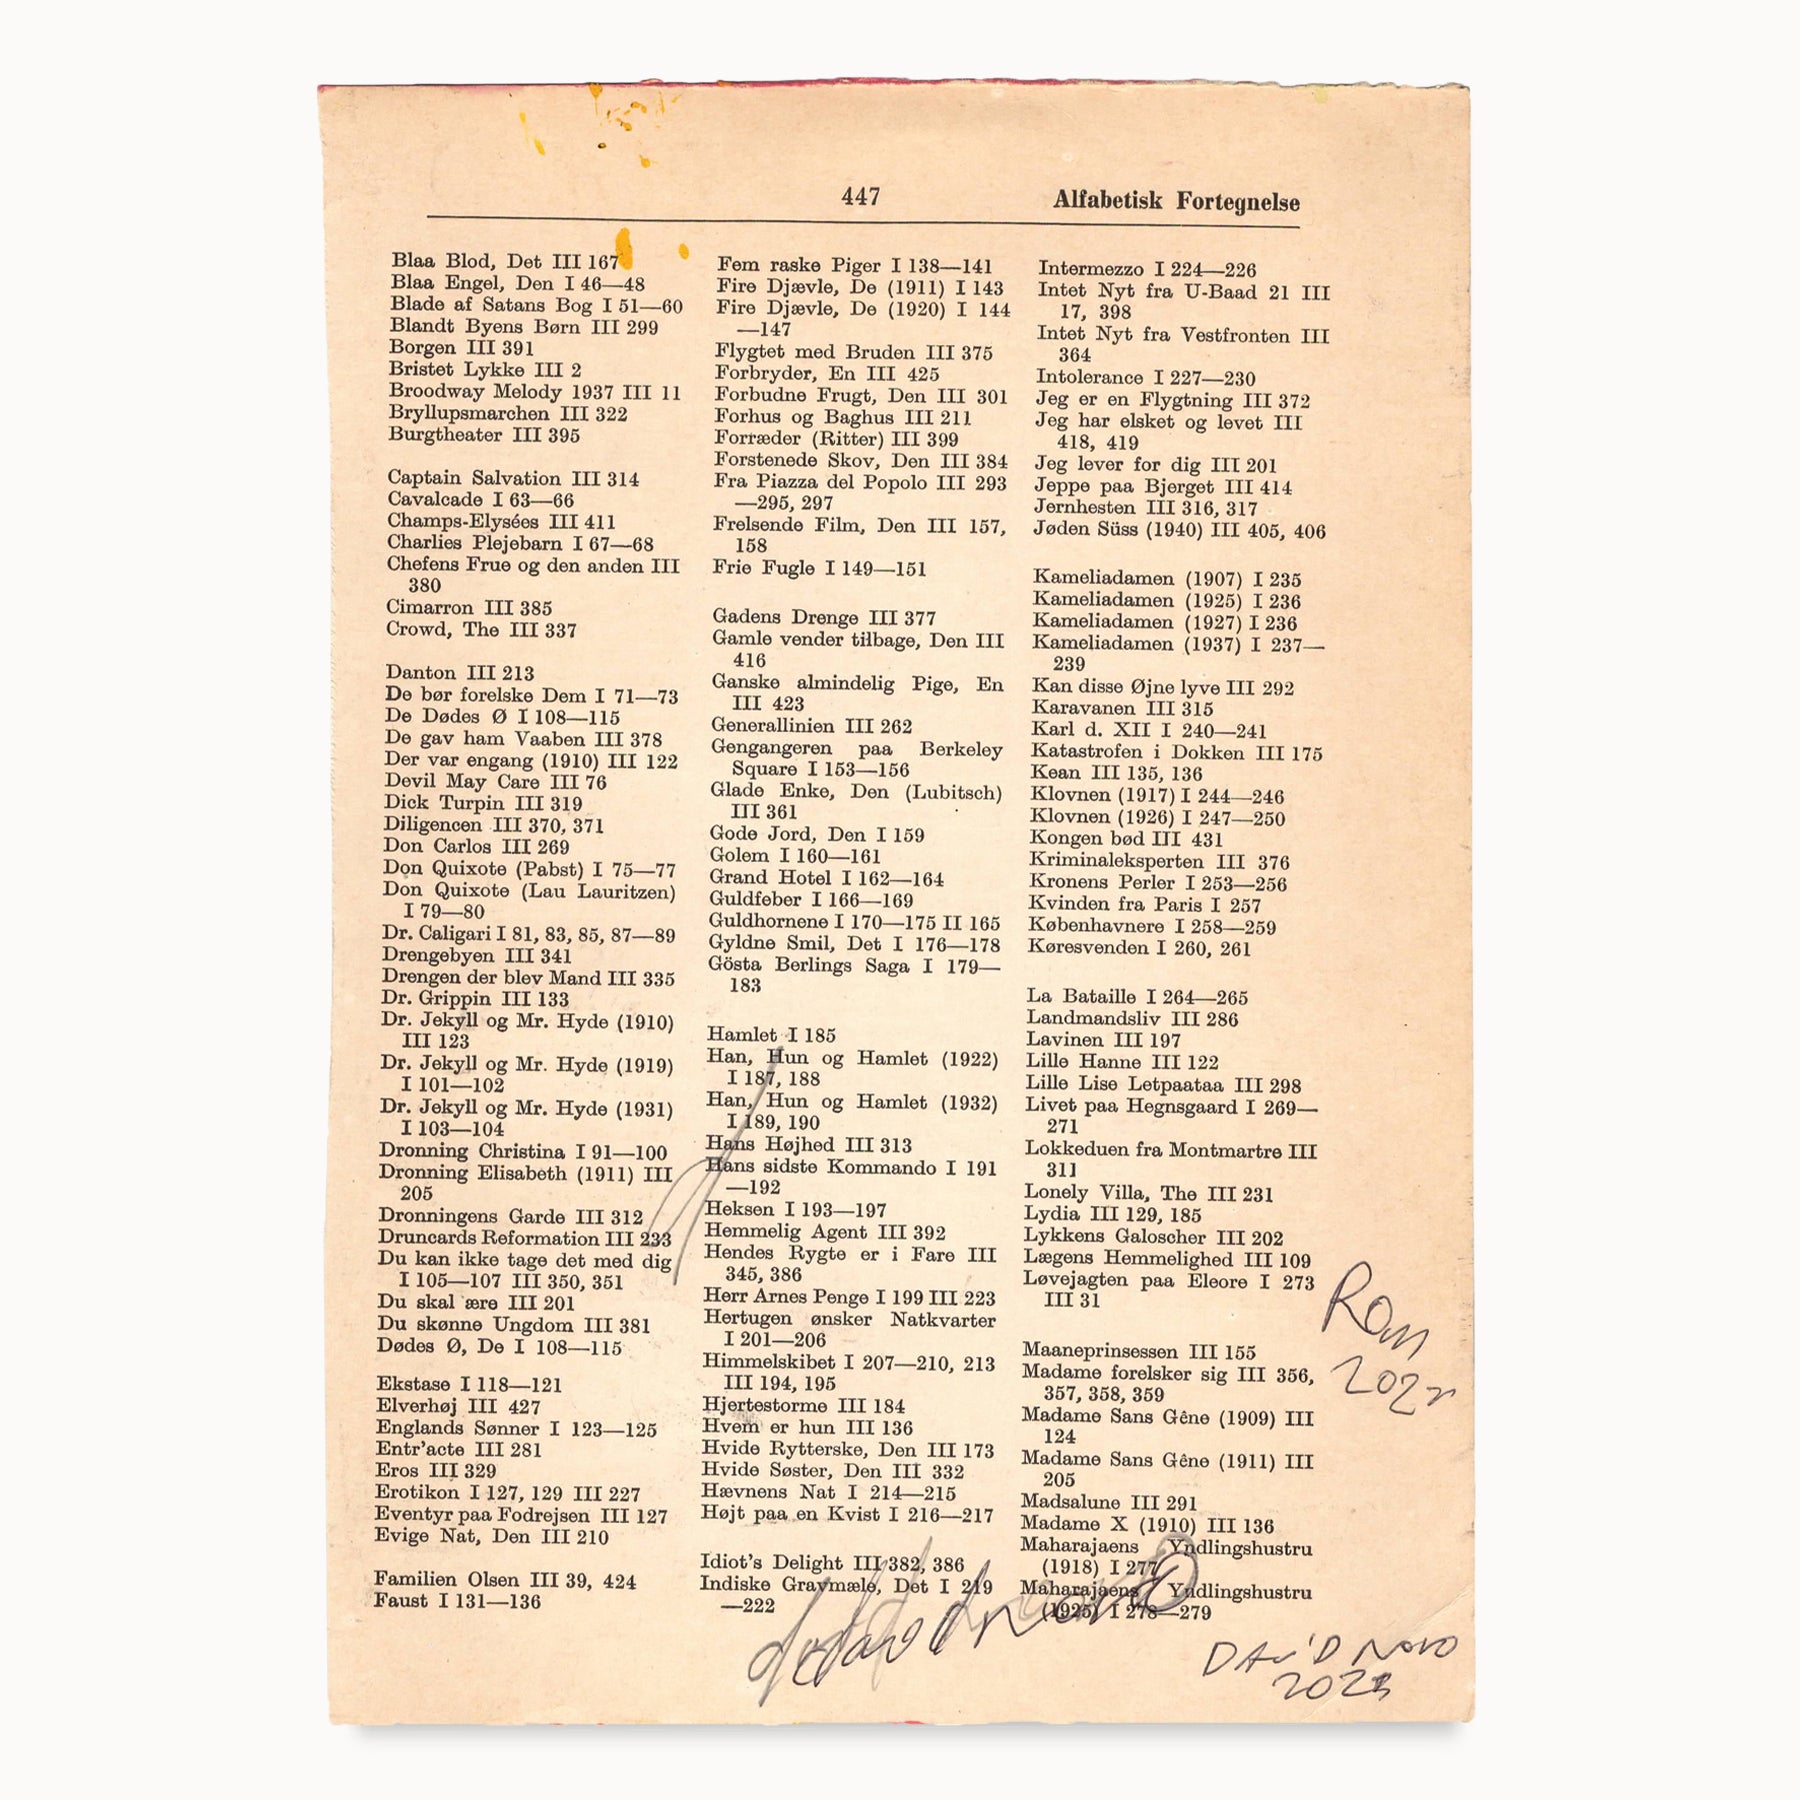 447
Alfabetisk Fortegnelse
Blaa Blod, Det III 167
Blaa Engel, Den I 46—48
Blade af Satans Bog I 51—60
Blandt Byens Børn III 299
Borgen III 391
Bristet Lykke III 2
Broodway Melody 1937 III 11
Bryllupsmarchen III 322
Burgtheater III 395
Captain Salvation III 314
Cavalcade I 63—66
Champs-Elysées III 411
Charlies Plejebarn I 67—68
Chefens Frue og den anden III
380
Cimarron III 385
Crowd, The III 337
Danton III 213
De bør forelske Dem I 71—73
De Dødes Ø I 108—115
De gav ham Vaaben III 378
Der var engang (1910) III 122
Devil May Care III 76
Dick Turpin III 319
Diligencen III 370, 371
Don Carlos III 269
Don Quixote (Pabst) I 75—77
Don Quixote (Lau Lauritzen)
I 79—80
Dr. Caligari I 81, 83, 85, 87—89
Drengebyen III 341
Drengen der blev Mand III 335
Dr. Grippin III 133
Dr. Jekyll og Mr. Hyde (1910)
III 123
Dr. Jekyll og Mr. Hyde (1919)
I 101—102
Dr. Jekyll og Mr. Hyde (1931)
I 103—104
Dronning Christina I 91—100
Dronning Elisabeth (1911) III
205
Dronningens Garde III 312
Druncards Reformation III 233
Du kan ikke tage det med dig
I 105—107 III 350, 351
Du skal ære III 201
Du skønne Ungdom III 381
Dødes Ø, De I 108—115
Ekstase I 118—121
Elverhøj III 427
Englands Sønner I 123—125
Entr'acte III 281
Eros III 329
Erotikon I 127, 129 III 227
Eventyr paa Fodrejsen III 127
Evige Nat, Den III 210
Familien Olsen III 39, 424
Faust I 131—136
Fem raske Piger I 138—141
Fire Djævle, De (1911) I 143
Fire Djævle, De (1920) I 144
—147
Flygtet med Bruden III 375
Forbryder, En III 425
Forbudne Frugt, Den III 301
Forhus og Baghus III 211
Forræder (Ritter) III 399
Forstenede Skov, Den III 384
Fra Piazza del Popolo III 293
—295, 297
Frelsende Film, Den III 157,
158
Frie Fugle I 149—151
Gadens Drenge III 377
Gamle vender tilbage, Den III
416
Ganske almindelig Pige, En
III 423
Generallinien III 262
Gengangeren paa Berkeley
Square I 153—156
Glade Enke, Den (Lubitsch)
III 361
Gode Jord, Den I 159
Golem I 160—161
Grand Hotel I 162—164
Guldfeber I 166—169
Guldhornene I 170—175 II 165
Gyldne Smil, Det I 176—178
Gösta Berlings Saga I 179—
183
Hamlet I 185
Han, Hun og Hamlet (1922)
I 187, 188
Han, Hun og Hamlet (1932)
I 189, 190
Hans Højhed III 313
Hans sidste Kommando I 191
—192
Heksen I 193—197
Hemmelig Agent III 392
Hendes Rygte er i Fare III
345, 386
Herr Arnes Penge I 199 III 223
Hertugen ønsker Natkvarter
I 201—206
Himmelskibet I 207—210, 213
III 194, 195
Hjertestorme III 184
Hvem er hun III 136
Hvide Rytterske, Den III 173
Hvide Søster, Den III 332
Hævnens Nat I 214—215
Højt paa en Kvist I 216—217
Idiot's Delight III 382, 386
Indiske Gravmæle, Det I 219
—222
Intermezzo I 224—226
Intet Nyt fra U-Baad 21 III
17, 398
Intet Nyt fra Vestfronten III
364
Intolerance I 227—230
Jeg er en Flygtning III 372
Jeg har elsket og levet III
418, 419
Jeg lever for dig III 201
Jeppe paa Bjerget III 414
Jernhesten III 316, 317
Jøden Süss (1940) III 405, 406
Kameliadamen (1907) I 235
Kameliadamen (1925) I 236
Kameliadamen (1927) I 236
Kameliadamen (1937) I 237—
239
Kan disse Øjne lyve III 292
Karavanen III 315
Karl d. XII I 240—241
Katastrofen i Dokken III 175
Kean III 135, 136
Klovnen (1917) I 244—246
Klovnen (1926) I 247—250
Kongen bød III 431
Kriminaleksperten III 376
Kronens Perler I 253—256
Kvinden fra Paris I 257
Københavnere I 258—259
Køresvenden I 260, 261
La Bataille I 264—265
Landmandsliv III 286
Lavinen III 197
Lille Hanne III 122
Lille Lise Letpaataa III 298
Livet paa Hegnsgaard I 269—
271
Lokkeduen fra Montmartre III
311
Lonely Villa, The III 231
Lydia III 129, 185
Lykkens Galoscher III 202
Lægens Hemmelighed III 109
Løvejagten paa Eleore I 273
III 31
Maaneprinsessen III 155
Madame forelsker sig III 356,
357, 358, 359
Madame Sans Gêne (1909) III
124
Madame Sans Gêne (1911) III
205
Madsalune III 291
Madame X (1910) III 136
Maharajaens Yndlingshustru
(1918) I 277
Maharajaens Yndlingshustru
(1925) I 278—279
david novo
DAViD NOVO
2023